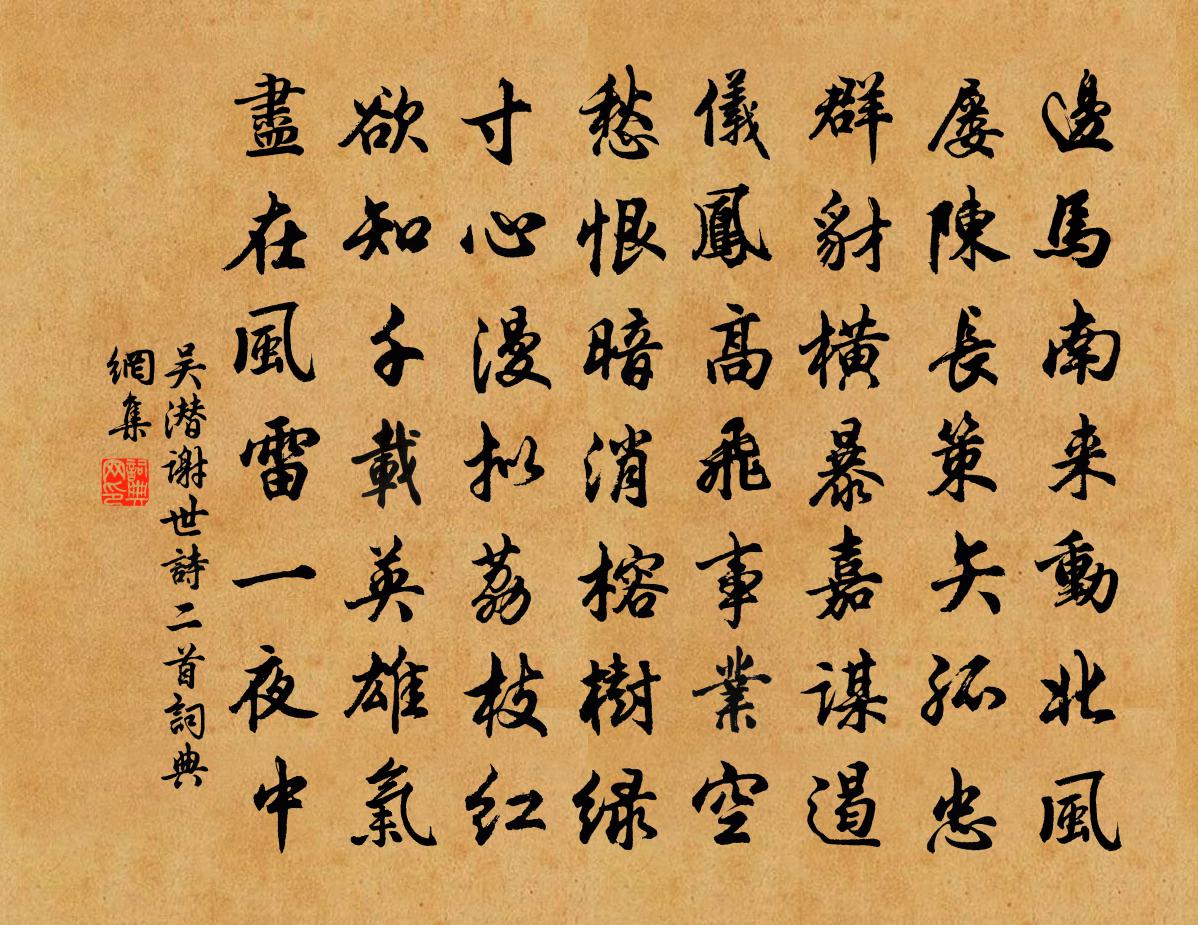 邊馬南来動北風
屡陳長策矢孤忠
群豺橫暴嘉謀遏
儀鳳高飛事業空
愁恨暗消榕樹緑
寸心漫拟荔枝紅
欲知千載英雄氣
盡在風雷一夜中
吴潜谢世詩二首詞典
網集
詞典
网印